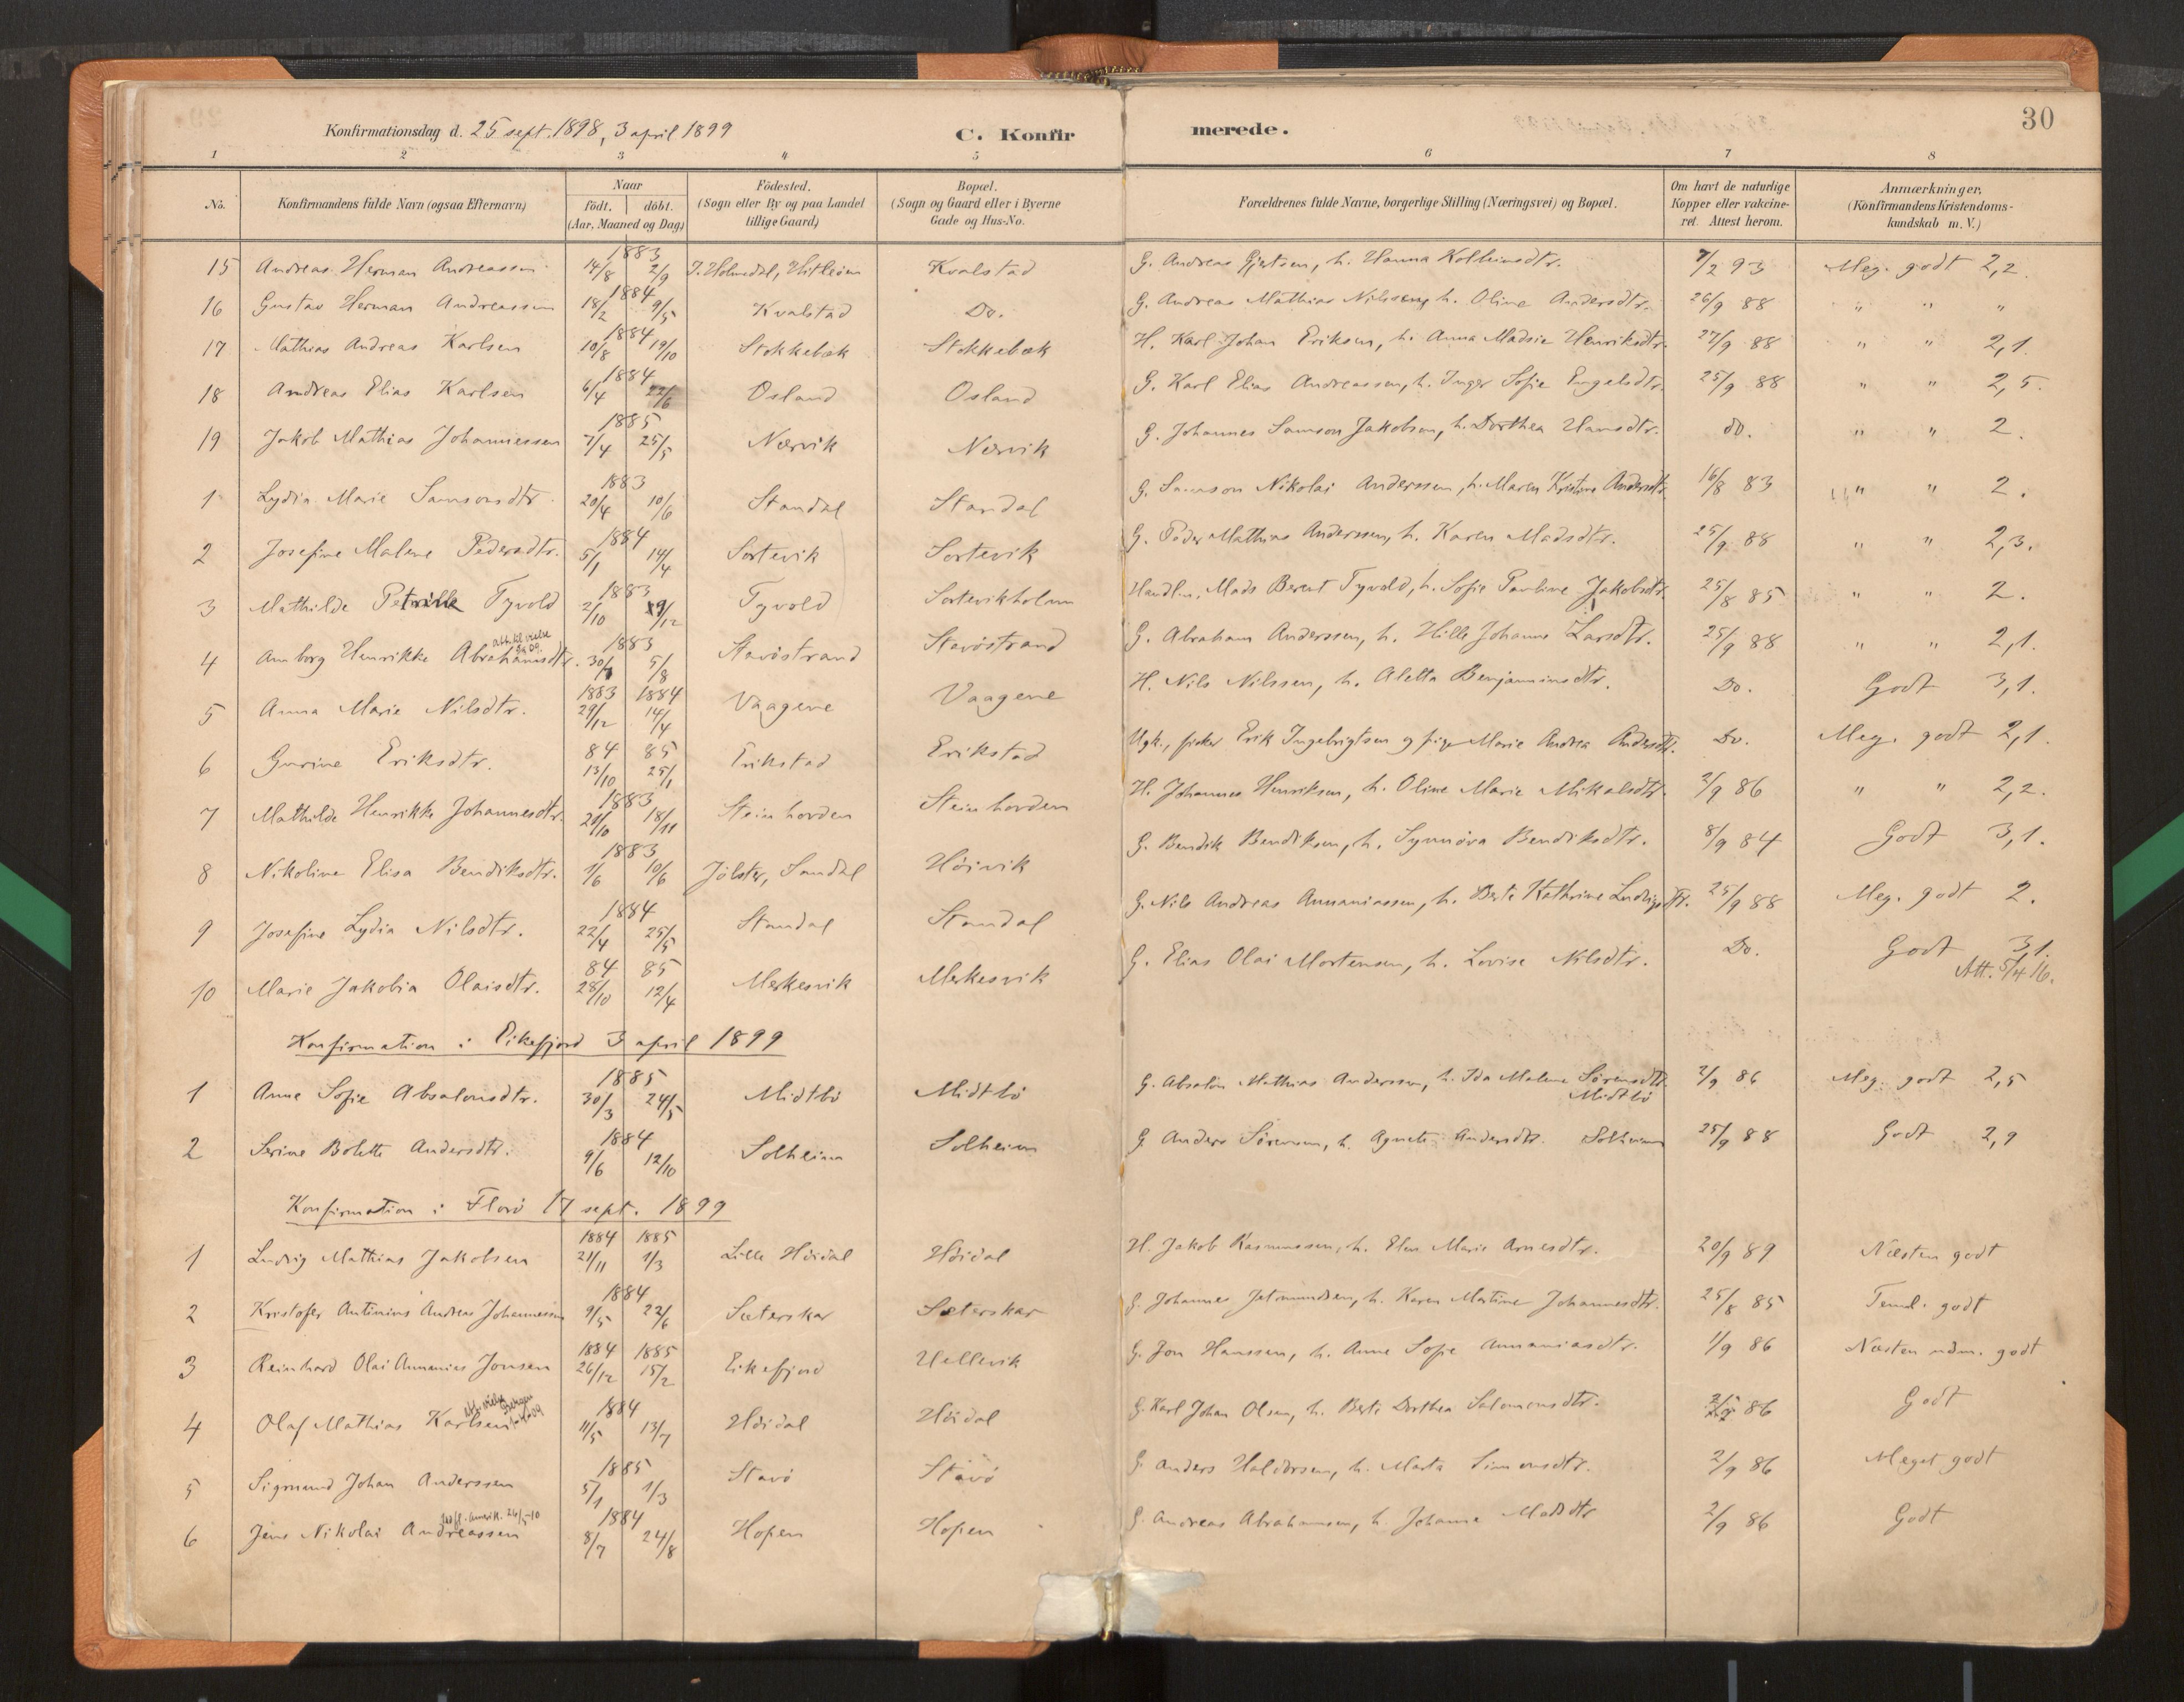 30
Konfirmationsdag d. 25 sept. 1898, 3 april 1899 C. Konfirmerede.
1 2 3 4 5 6 7 8
No. Konfirmandens fulde Navn (ogsaa Efternavn) Naar født. døbt. (Aar, Maaned og Dag) Födested. (Sogn eller By og paa Landet tillige Gaard) Bopæl. (Sogn og Gaard eller i Byerne Gade og Hus-No. Forældrenes fulde Navne, borgerlige Stilling (Næringsvei) og Bopæl. Om havt de naturlige Kopper eller vakcineret. Attest herom. Anmærkninger. (Konfirmandens Kristendomskundskab m. V.)
15 Andreas Herman Andreassen 1883 14/8 2/9 Y. Holmedal, Hitleim Kvalstad G. Andreas Gjertsen, h. Hanna Kolbeinsdtr. 7/2 93 Meg. godt 2,2.
16 Gustav Herman Andreassen 1884 18/2 9/5 Kvalstad Do. G. Andreas Mathias Nilssen, h. Oline Andersdtr. 26/9 88 " " "
17 Mathias Andreas Karlsen 1884 10/8 19/10 Stokkebæk Stokkebæk H. Karl Johan Eriksen, h. Anna Madsie Henriksdtr. 27/9 88 " " 2,1.
18 Andreas Elias Karlsen 1884 6/4 22/6 Osland Osland G. Karl Elias Andreassen, h. Inger Sofie Engelsdtr. 25/9 88 " " 2,5.
19 Jakob Mathias Johannessen 1885 7/4 25/5 Nærvik Nærvik G. Johannes Samson Jakobsen, h. Dorthea Hansdtr. do. " " 2.
1 Lydia Marie Samsonsdtr. 1883 20/4 10/6 Standal Standal G. Samson Nikolai Anderssen, h. Maren Kristine Andersdtr. 16/8 83 " " 2.
2 Josefine Malene Pedersdtr. 1884 5/1 14/4 Sortevik Sortevik G. Peder Mathias Anderssen, h. Karen Madsdtr. 25/9 88 " " 2,3.
3 Mathilde Petrikke Tyvold 1883 2/10 19/12 Tyvold Sortevikholm Handl. Mads Berent Tyvold, h. Sofie Pauline Jakobsdtr. 25/8 85 " " 2.
4 Annborg Henrikke Abrahamsdtr. Att. til vielse 1883 30/ 5/8 Stavöstrand Stavöstrand G. Abraham Anderssen, h. Hille Johanne Larsdtr. 25/9 88 " " 2,1.
5 Anna Marie Nilsdtr. 1883 1884 29/12 14/4 Vaagene Vaagene H. Nils Nilssen, h. Aletta Benjaminsdtr. Do. Godt 3,1.
6 Gurine Eriksdtr. 84 85 13/10 25/1 Erikstad Erikstad Ugk., fisker Erik Ingebrigtsen og pige Marie Andrea Andersdtr. Do. Meg. godt 2,1.
7 Mathilde Henrikke Johannesdtr. 1883 20/10 18/11 Steinhovden Steinhovden H. Johannes Henriksen, h. Oline Marie Mikalsdtr. 2/9 86 " " 2,2.
8 Nikoline Elisa Bendiksdtr. 1883 1/6 10/6 Jölster, Sandal Höivik G. Bendik Bendiksen, h. Synnöva Bendiksdtr. 8/9 84 Godt 3,1.
9 Josefine Lydia Nilsdtr. 1884 22/4 25/5 Standal Standal G. Nils Andreas Annaniassen, h. Berte Kathrine Ludvigsdtr. 25/9 88 Meg. godt 2.
10 Marie Jakobia Olaisdtr. 84 85 28/10 12/4 Merkesvik Merkesvik G. Elias Olai Mortensen, h. Lovise Nilsdtr. Do. Godt 3,1. Att. 5/4 16.
Konfirmation i Eikefjord 3 april 1899
1 Anne Sofie Absalonsdtr. 1885 30/3 24/5 Midtbö Midtbö G. Absalon Mathias Anderssen, h. Ida Malene Sörensdtr. Midtbö 2/9 86 Meg. godt 2,5
2 Serine Bolette Andersdtr. 1884 9/6 12/10 Solheim Solheim G. Anders Sörensen, h. Agnete Andersdtr. Solheim 25/9 88 Godt 2,9
Konfirmation i Florö 17 sept. 1899
1 Ludvig Mathias Jakobsen 1884 1885 21/11 1/3 Lille Höidal Höidal H. Jakob Rasmussen, h. Elen Marie Arnesdtr. 20/9 89 Næsten godt
2 Kristofer Antinius Andreas Johannessen 1884 9/5 22/6 Sæterskar Sæterskar G. Johannes Jetmundsen, h. Karen Martine Johannesdtr. 25/8 85 Teml. godt
3 Reinhard Olai Annanias Jonsen 1884 1885 26/12 15/2 Eikefjord Hellevik G. Jon Hanssen, h. Anne Sofie Annaniasdtr. 1/9 86 Næsten udm. godt
4 Olaf Mathias Karlsen Att. vielse Bergen 1884 11/5 13/7 Höidal Höidal G. Karl Johan Olsen, h. Berte Dorthea Salomonsdtr. 86 Godt
5 Sigmund Johan Anderssen 1885 5/1 1/3 Stavö Stavö G. Anders Halvorsen, h. Marta Simonsdtr. 2/9 86 Meget godt
6 Jens Nikolai Andreassen Amerik. 26/5-10 1884 8/7 24/8 Hopen Hopen G. Andreas Abrahamsen, h. Johanna Madsdtr 2/9 86 Godt